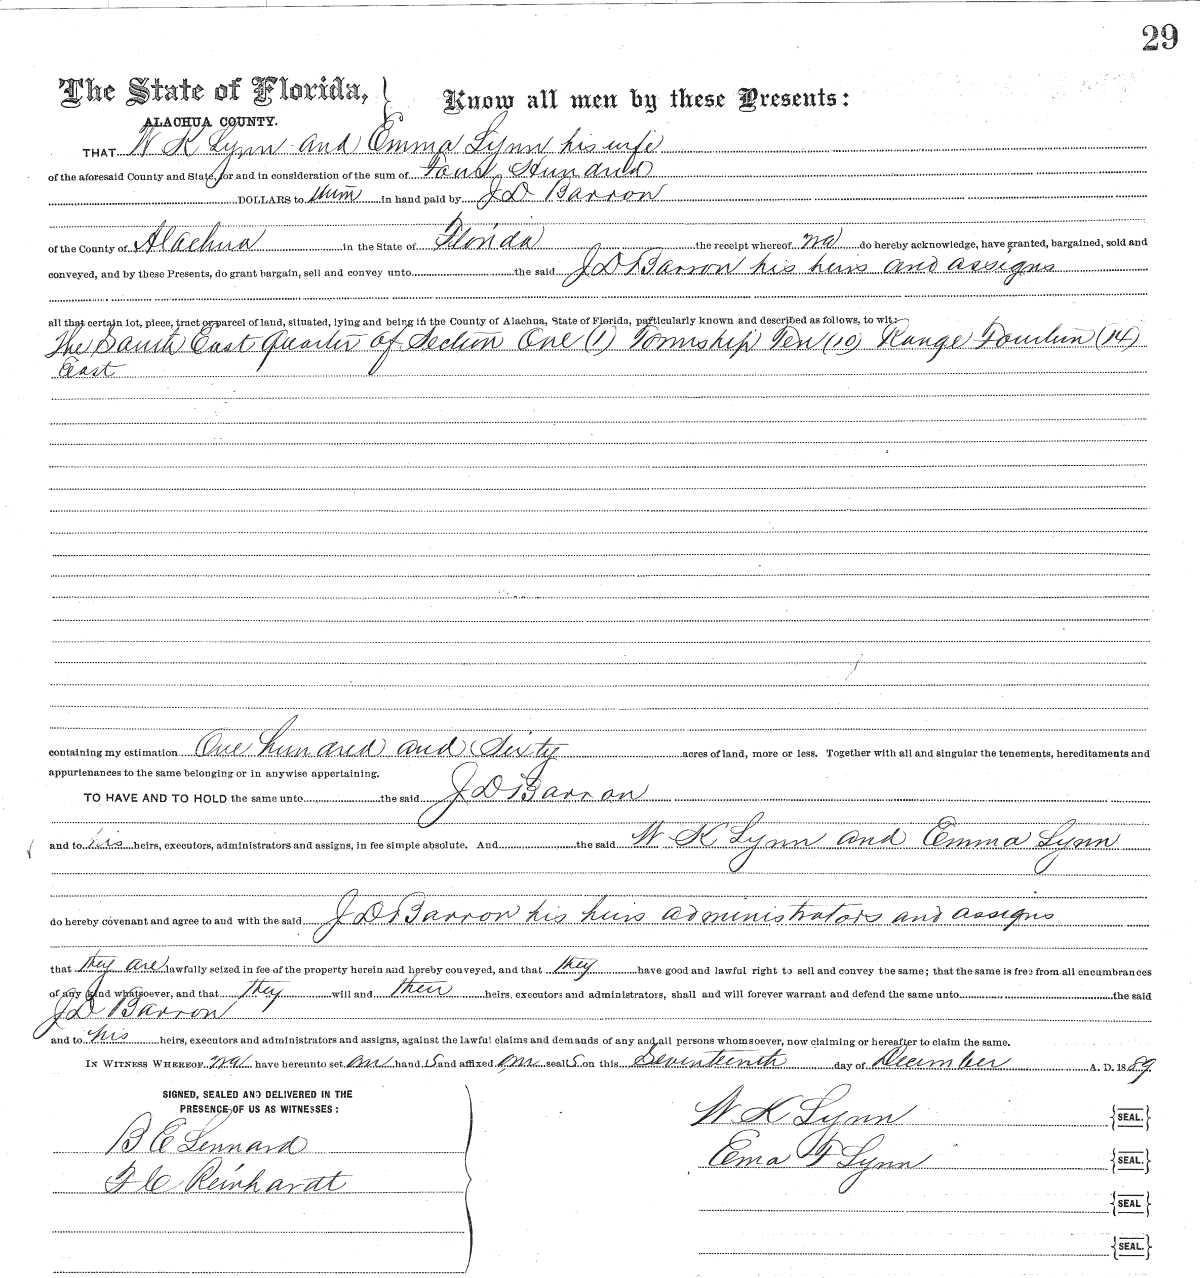 29
The State of Florida, } Know all men by these Presents:
ALACHUA COUNTY.
THAT W K Lynn and Emma Lynn his wife
of the aforesaid County and State, for and in consideration of the sum of Four Hundred
DOLLARS to them in hand paid by J D Barron
of the County of Alachua in the State of Florida the receipt whereof we do hereby acknowledge, have granted, bargained, sold and
conveyed, and by these Presents, do grant bargain, sell and convey unto the said J D Barron his heirs and assigns
all that certain lot, piece, tract or parcel of land, situated, lying and being in the County of Alachua, State of Florida, particularly known and described as follows, to wit:
The South East Quarter of Section One (1) Township Ten (10) Range Fourteen (14)
East
containing my estimation One hundred and Sixty acres of land, more or less. Together with all and singular the tenements, hereditaments and
appurtenances to the same belonging or in anywise appertaining.
TO HAVE AND TO HOLD the same unto the said J D Barron
and to his heirs, executors, administrators and assigns, in fee simple absolute. And the said W K Lynn and Emma Lynn
do hereby covenant and agree to and with the said J D Barron his heirs administrators and assigns
that they are lawfully seized in fee of the property herein and hereby conveyed, and that they have good and lawful right to sell and convey the same; that the same is free from all encumbrances
of any kind whatsoever, and that they will and their heirs, executors and administrators, shall and will forever warrant and defend the same unto the said
J D Barron
and to his heirs, executors and administrators and assigns, against the lawful claims and demands of any and all persons whomsoever, now claiming or hereafter to claim the same.
IN WITNESS WHEREOF we have hereunto set our hand S and affixed our seal S on this Seventeenth day of December A. D. 1889
SIGNED, SEALED AND DELIVERED IN THE
PRESENCE OF US AS WITNESSES:
W K Lynn {SEAL.}
B E Lennard
Ema F Lynn {SEAL.}
F C Reinhardt
{SEAL}
{SEAL.}